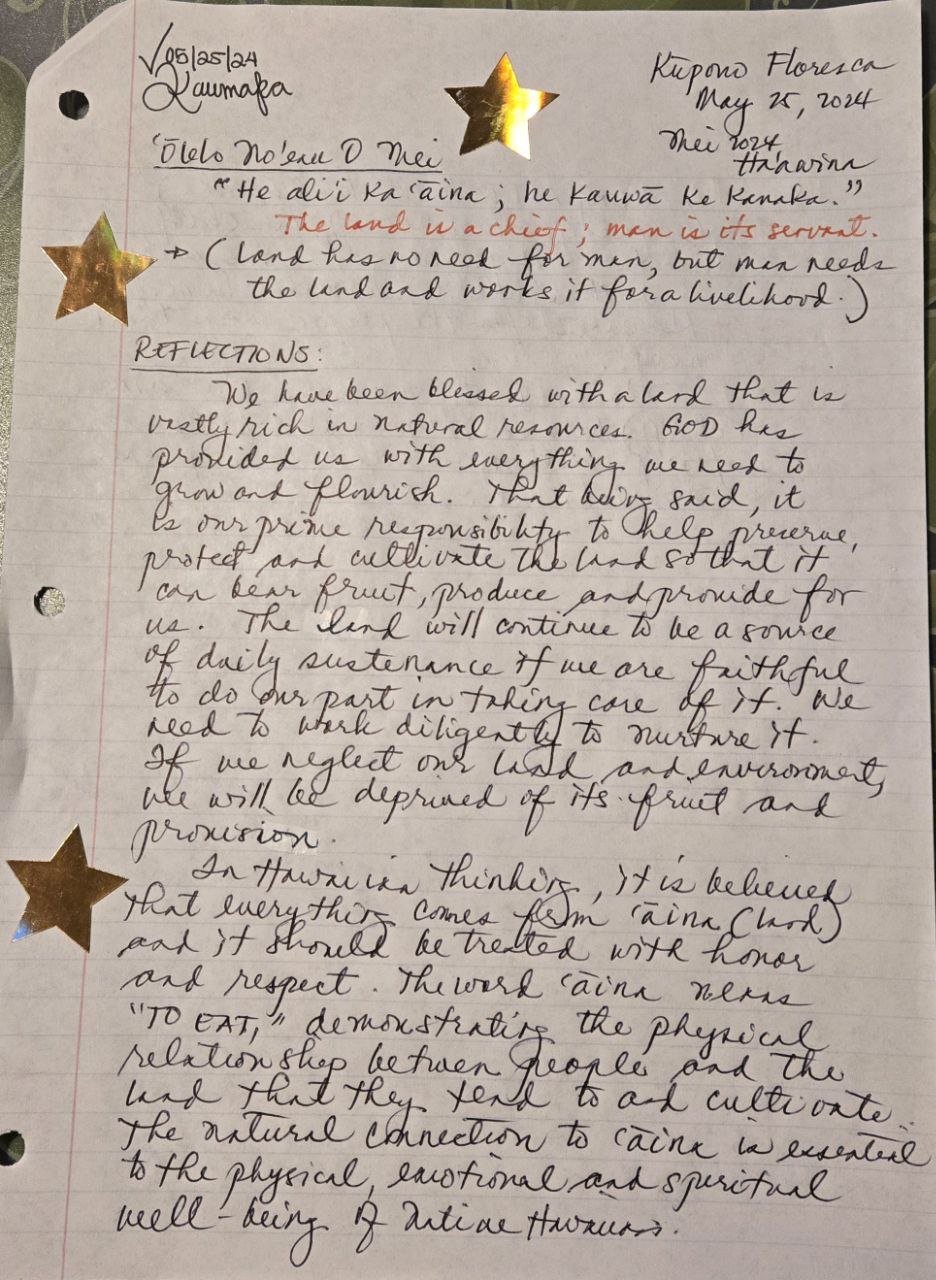 √05/25/24
Kaumaka
Kūpono Floresca
May 25, 2024
Mei 2024
Ha'awina
'Ōlelo No'eau O Mei
"He ali'i ka 'āina; he kauwā ke kanaka."
The land is a chief; man is its servant.
→ (Land has no need for man, but man needs
the land and works it for a livelihood.)
REFLECTIONS:
We have been blessed with a land that is
vastly rich in natural resources. GOD has
provided us with everything we need to
grow and flourish. That being said, it
is our prime responsibility to help preserve,
protect and cultivate the land so that it
can bear fruit, produce and provide for
us. The land will continue to be a source
of daily sustenance if we are faithful
to do our part in taking care of it. We
need to work diligently to nurture it.
If we neglect our land and environment,
we will be deprived of its fruit and
provision.
In Hawaiian thinking, it is believed
that everything comes from 'āina (land)
and it should be treated with honor
and respect. The word 'āina means
"TO EAT," demonstrating the physical
relationship between people and the
land that they tend to and cultivate.
The natural connection to 'āina is essential
to the physical, emotional and spiritual
well-being of Native Hawaiians.